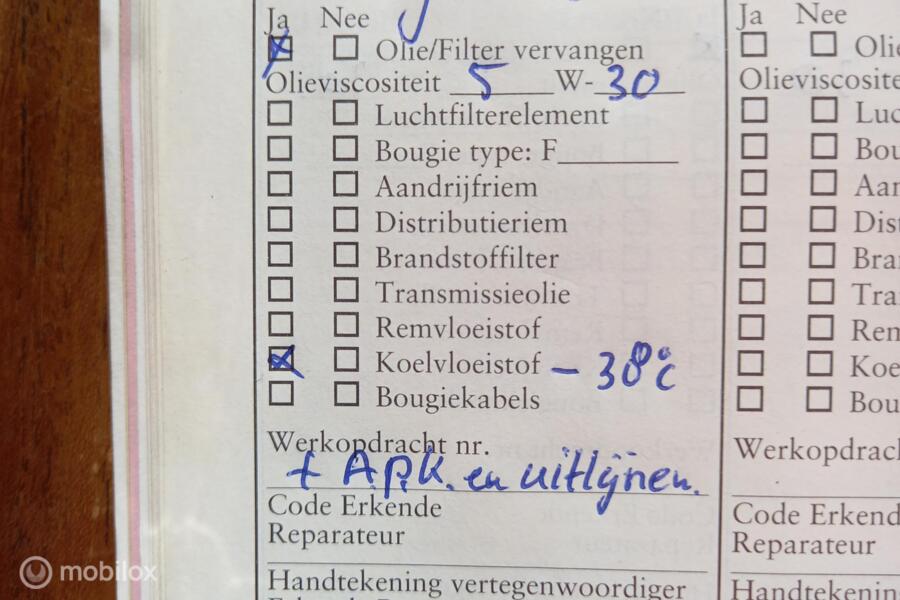 Ja Nee
Olie/Filter vervangen
Olieviscositeit 5 W- 30
Luchtfilterelement
Bougie type: F
Aandrijfriem
Distributieriem
Brandstoffilter
Transmissieolie
Remvloeistof
Koelvloeistof - 38°c
Bougiekabels
Werkopdracht nr.
+ A.P.K. en uitlijnen.
Code Erkende
Reparateur
Handtekening vertegenwoordiger
Ja Nee
Olie
Olieviscosite
Luc
Bou
Aan
Dist
Bra
Tra
Rem
Koe
Bou
Werkopdrach
Code Erkend
Reparateur
Handtekening
mobilox